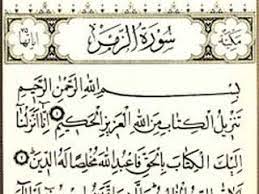 سُورَةُ الزُّمَرِ
بِسْمِ اللهِ الرَّحْمٰنِ الرَّحِيمِ
تَنْزِيلُ الْكِتَابِ مِنَ اللهِ الْعَزِيزِ الْحَكِيمِ ۝ اِنَّٓا اَنْزَلْنَٓا
اِلَيْكَ الْكِتَابَ بِالْحَقِّ فَاعْبُدِ اللهَ مُخْلِصًا لَهُ الدِّينَ ۝